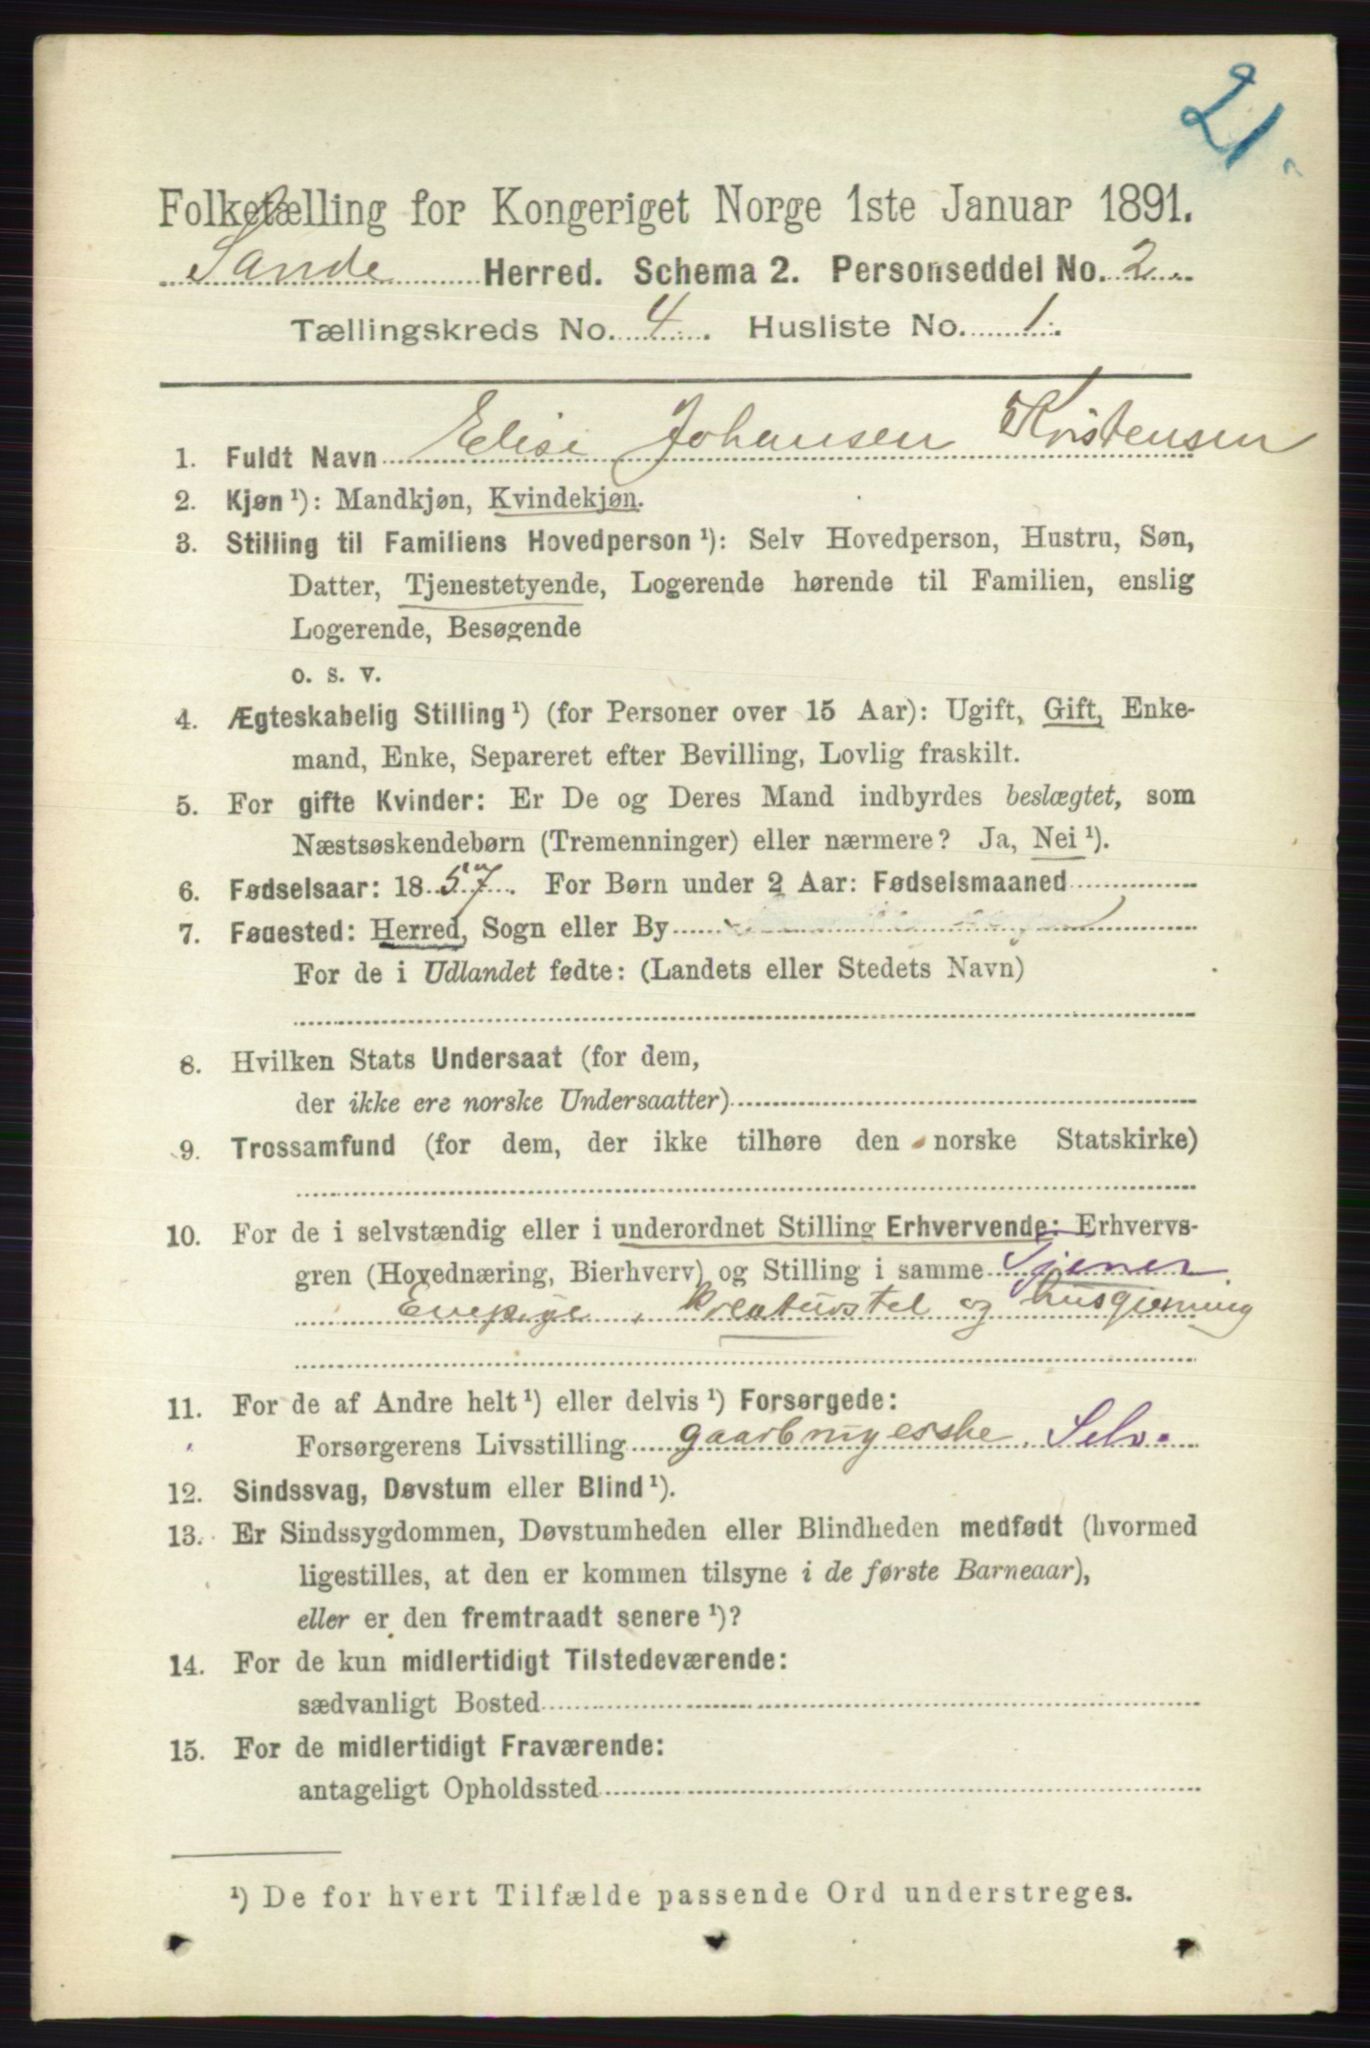 21.
Folketælling for Kongeriget Norge 1ste Januar 1891.
Sande Herred. Schema 2. Personseddel No. 2
Tællingskreds No. 4. Husliste No. 1.
1. Fuldt Navn Elise Johansen Kristensen
2. Kjøn ¹): Mandkjøn, Kvindekjøn.
3. Stilling til Familiens Hovedperson ¹): Selv Hovedperson, Hustru, Søn,
Datter, Tjenestetyende, Logerende hørende til Familien, enslig
Logerende, Besøgende
o. s. v.
4. Ægteskabelig Stilling ¹) (for Personer over 15 Aar): Ugift, Gift, Enke-
mand, Enke, Separeret efter Bevilling, Lovlig fraskilt.
5. For gifte Kvinder: Er De og Deres Mand indbyrdes beslægtet, som
Næstsøskendebørn (Tremenninger) eller nærmere? Ja, Nei ¹).
6. Fødselsaar: 1857. For Børn under 2 Aar: Fødselsmaaned
7. Fødested: Herred, Sogn eller By
For de i Udlandet fødte: (Landets eller Stedets Navn)
8. Hvilken Stats Undersaat (for dem,
der ikke ere norske Undersaatter)
9. Trossamfund (for dem, der ikke tilhøre den norske Statskirke)
10. For de i selvstændig eller i underordnet Stilling Erhvervende: Erhvervs-
gren (Hovednæring, Bierhverv) og Stilling i samme Tjener
Enepige, Kreaturstel og husgjerning
11. For de af Andre helt ¹) eller delvis ¹) Forsørgede:
Forsørgerens Livsstilling gaarbrugerske, Selv.
12. Sindssvag, Døvstum eller Blind ¹).
13. Er Sindssygdommen, Døvstumheden eller Blindheden medfødt (hvormed
ligestilles, at den er kommen tilsyne i de første Barneaar),
eller er den fremtraadt senere ¹)?
14. For de kun midlertidigt Tilstedeværende:
sædvanligt Bosted
15. For de midlertidigt Fraværende:
antageligt Opholdssted
¹) De for hvert Tilfælde passende Ord understreges.